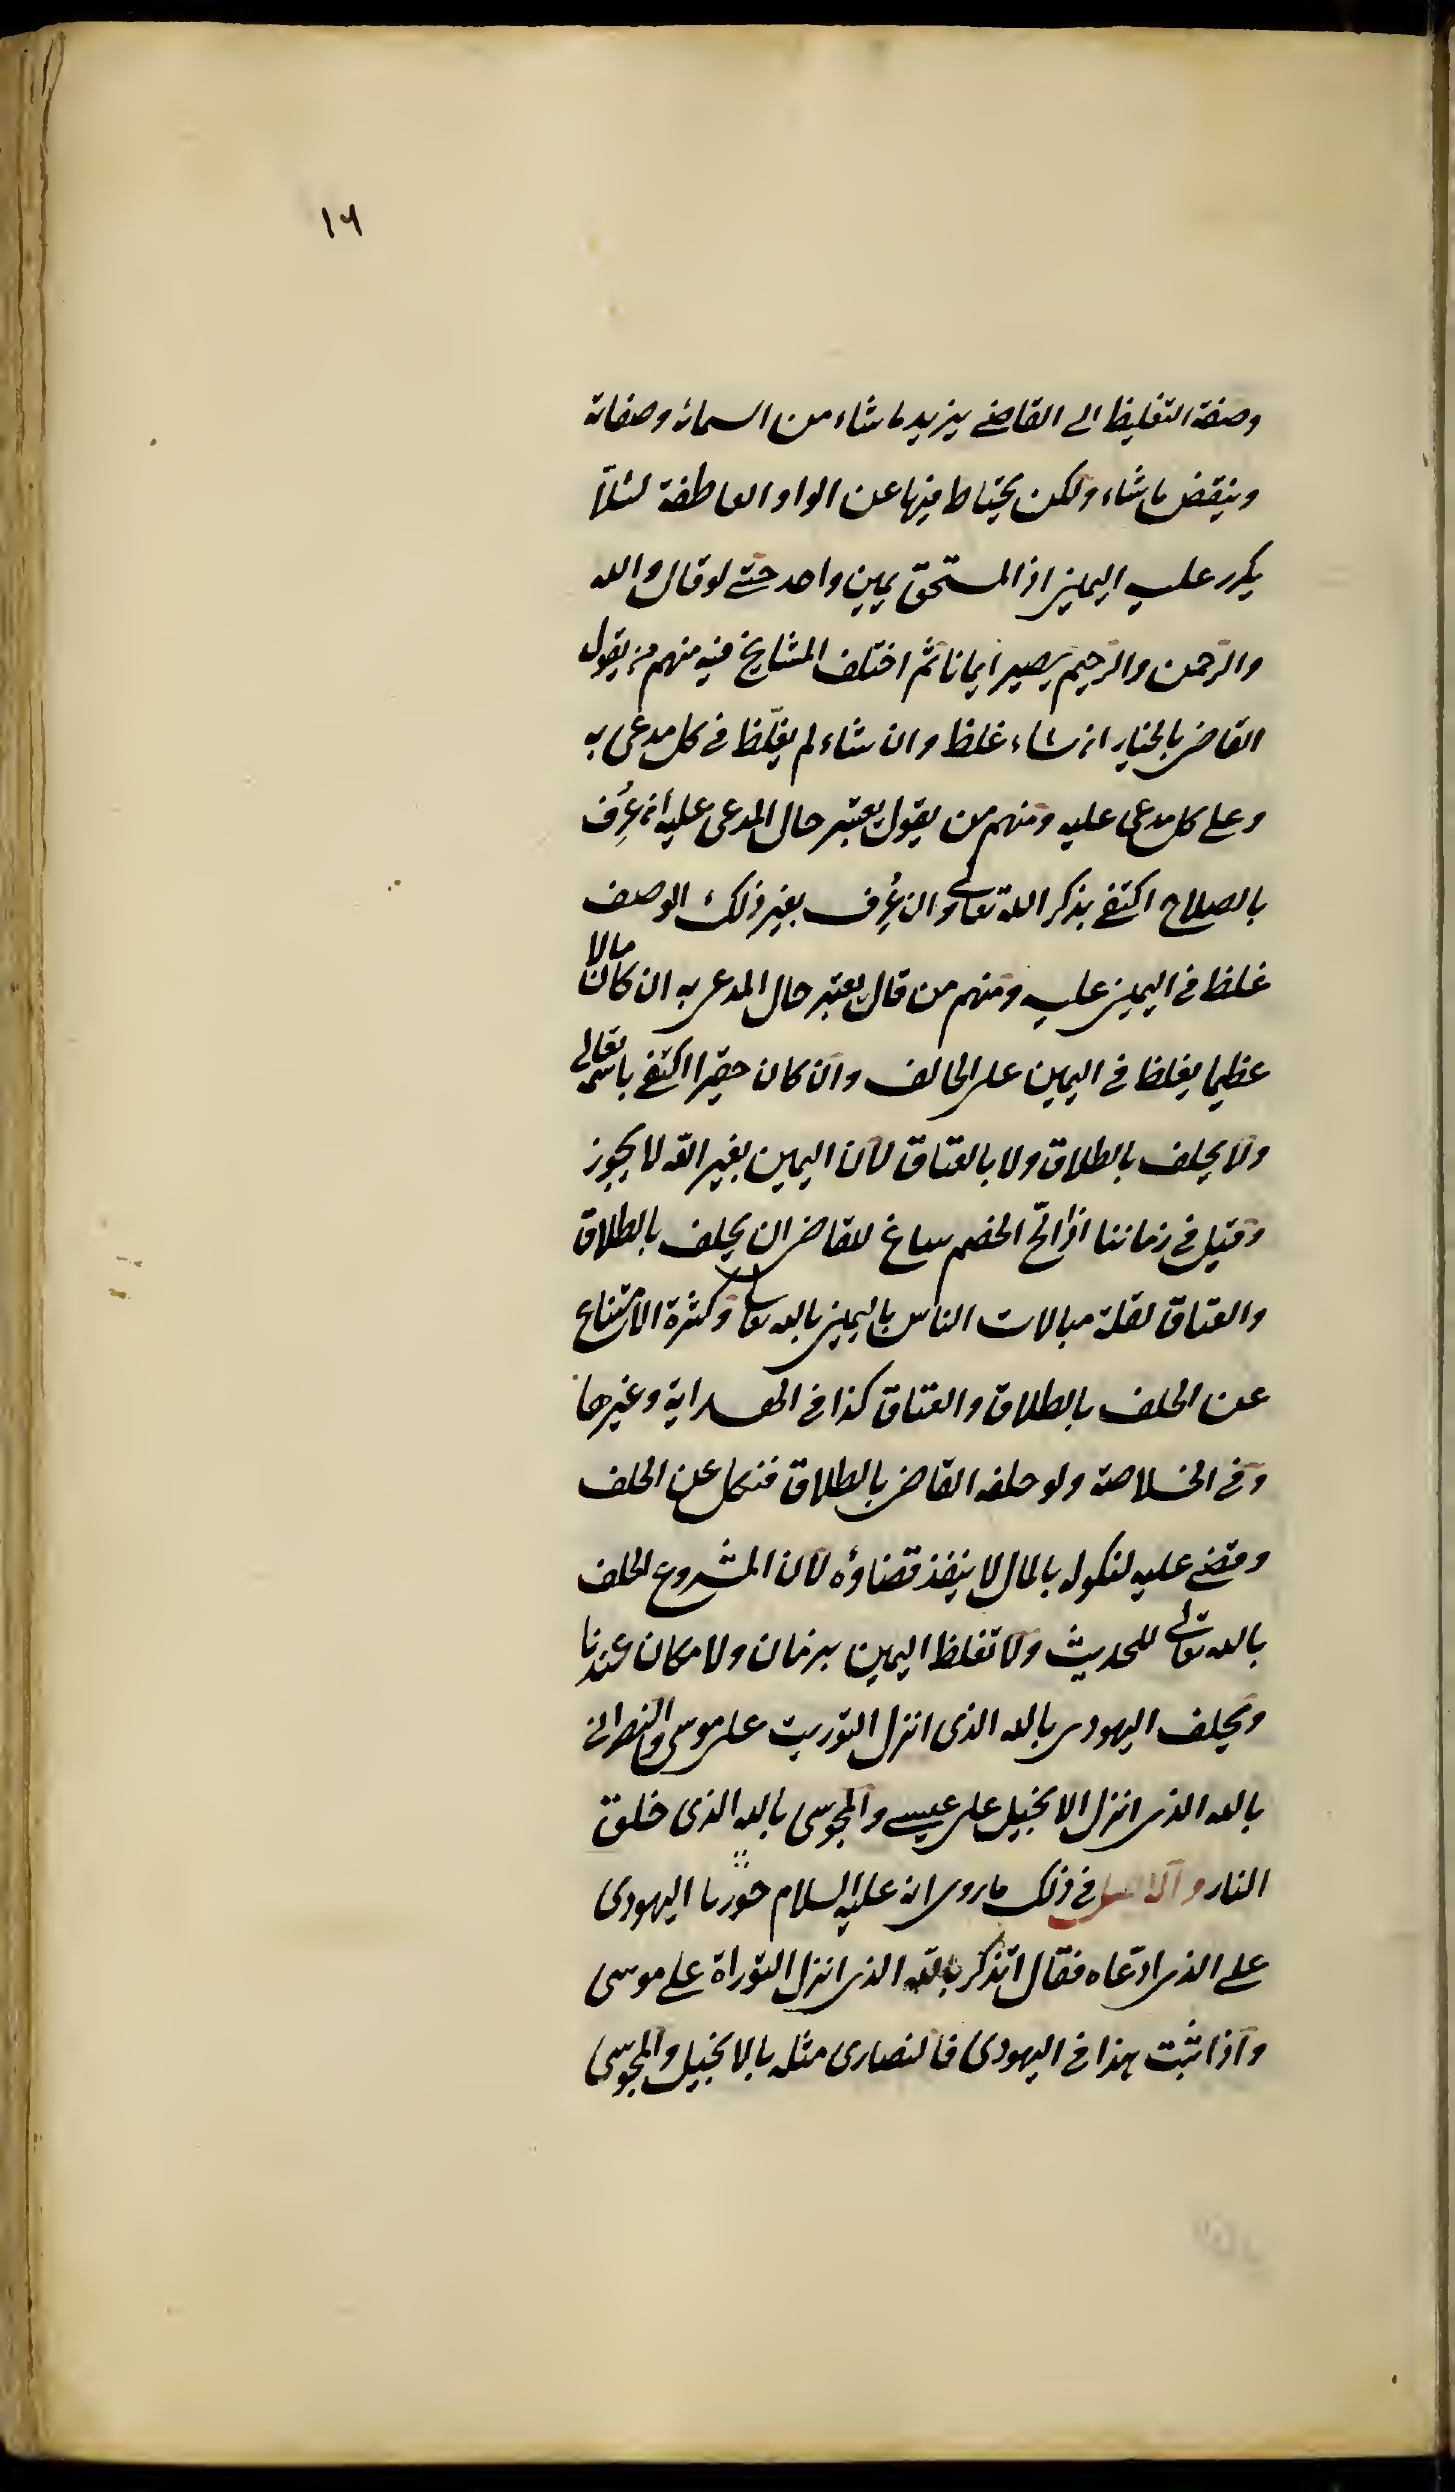 ١٦
وصفة التغليظ الى القاضى يزيد ما شاء من اسمائه وصفاته
وينقض ما شاء ولكن يحتاط فيها عن الواو العاطفة لئلّا
يكرر عليه اليمين اذ المستحق يمين واحد حتى لو قال والله
والرّحمن والرّحيم يصير ايمانا ثم اختلف المشايخ فيه منهم من يقول
القاضى بالخيار ان شاء غلظ وان شاء لم يغلّظ فى كل مدعى به
وعلى كل مدعى عليه ومنهم من يقول يعتبر حال المدعى عليه ان عُرِف
بالصلاح اكتفى بذكر الله تعالى وان عُرِف بغير ذلك الوصف
غلظ فى اليمين عليه ومنهم من قال يعتبر حال المدعى به ان كان مالا
عظيما يغلظ فى اليمين على الحالف وان كان حقيرا اكتفى باسمه تعالى
ولا يحلف بالطلاق ولا بالعتاق لان اليمين بغير الله لا يجوز
وقيل فى زماننا اذا الحّ الخصم ساغ للقاضى ان يحلف بالطلاق
والعتاق لقلة مبالات الناس باليمين بالله تعالى وكثرة الامتناع
عن الحلف بالطلاق والعتاق كذا فى الهداية وغيرها
وفى الخلاصة ولو حلفه القاضى بالطلاق فنكل عن الحلف
وقضى عليه لنكوله بالمال لا ينفذ قضاؤه لان المشروع الحلف
بالله تعالى للحديث ولا تغلظ اليمين بزمان ولا مكان عندنا
ويحلف اليهودى بالله الذى انزل التوريت على موسى والنصرانى
بالله الذى انزل الانجيل على عيسى والمجوسى بالله الذى خلق
النار والاصل فى ذلك ما روى انه عليه السلام اليهودى
على الذى ادّعاه فقال اتذكر بالله الذى انزل التوراة على موسى
واذا ثبت هذا فى اليهودى فالنصارى مثله بالانجيل والمجوسى